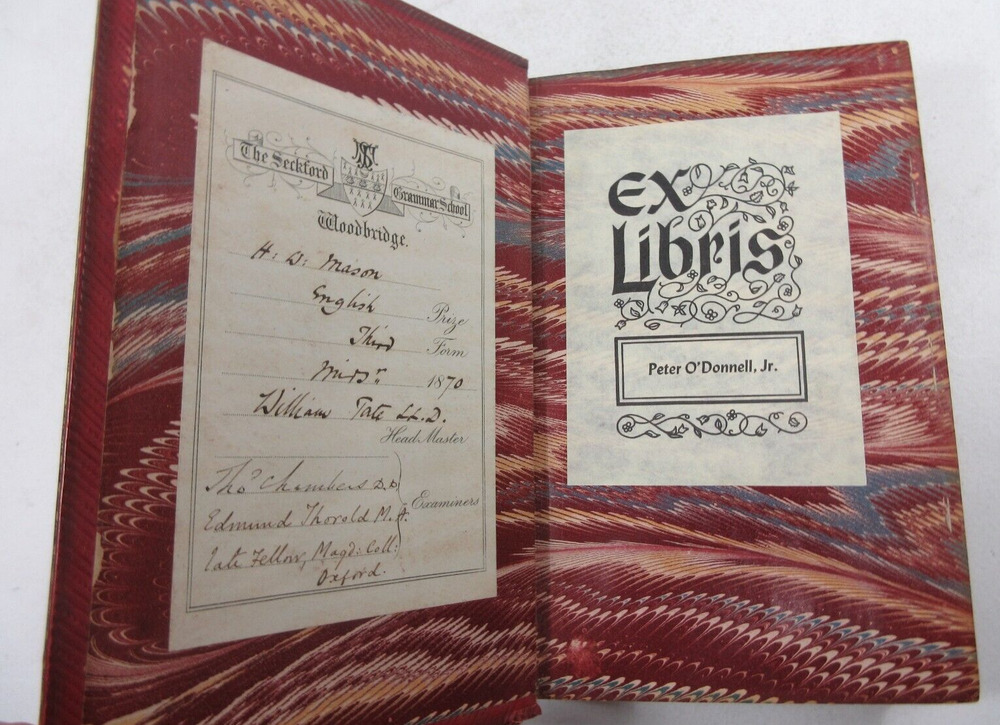 The Seckford
Grammar School
Woodbridge.
H: D: Mason
English Prize
Third Form
1870
William Tate LL.D.
Head Master
Thos Chambers D.D
Edmund Thorold M.A. Examiners
late Fellow, Magd: Coll:
Oxford.
Ex
Libris
Peter O'Donnell, Jr.